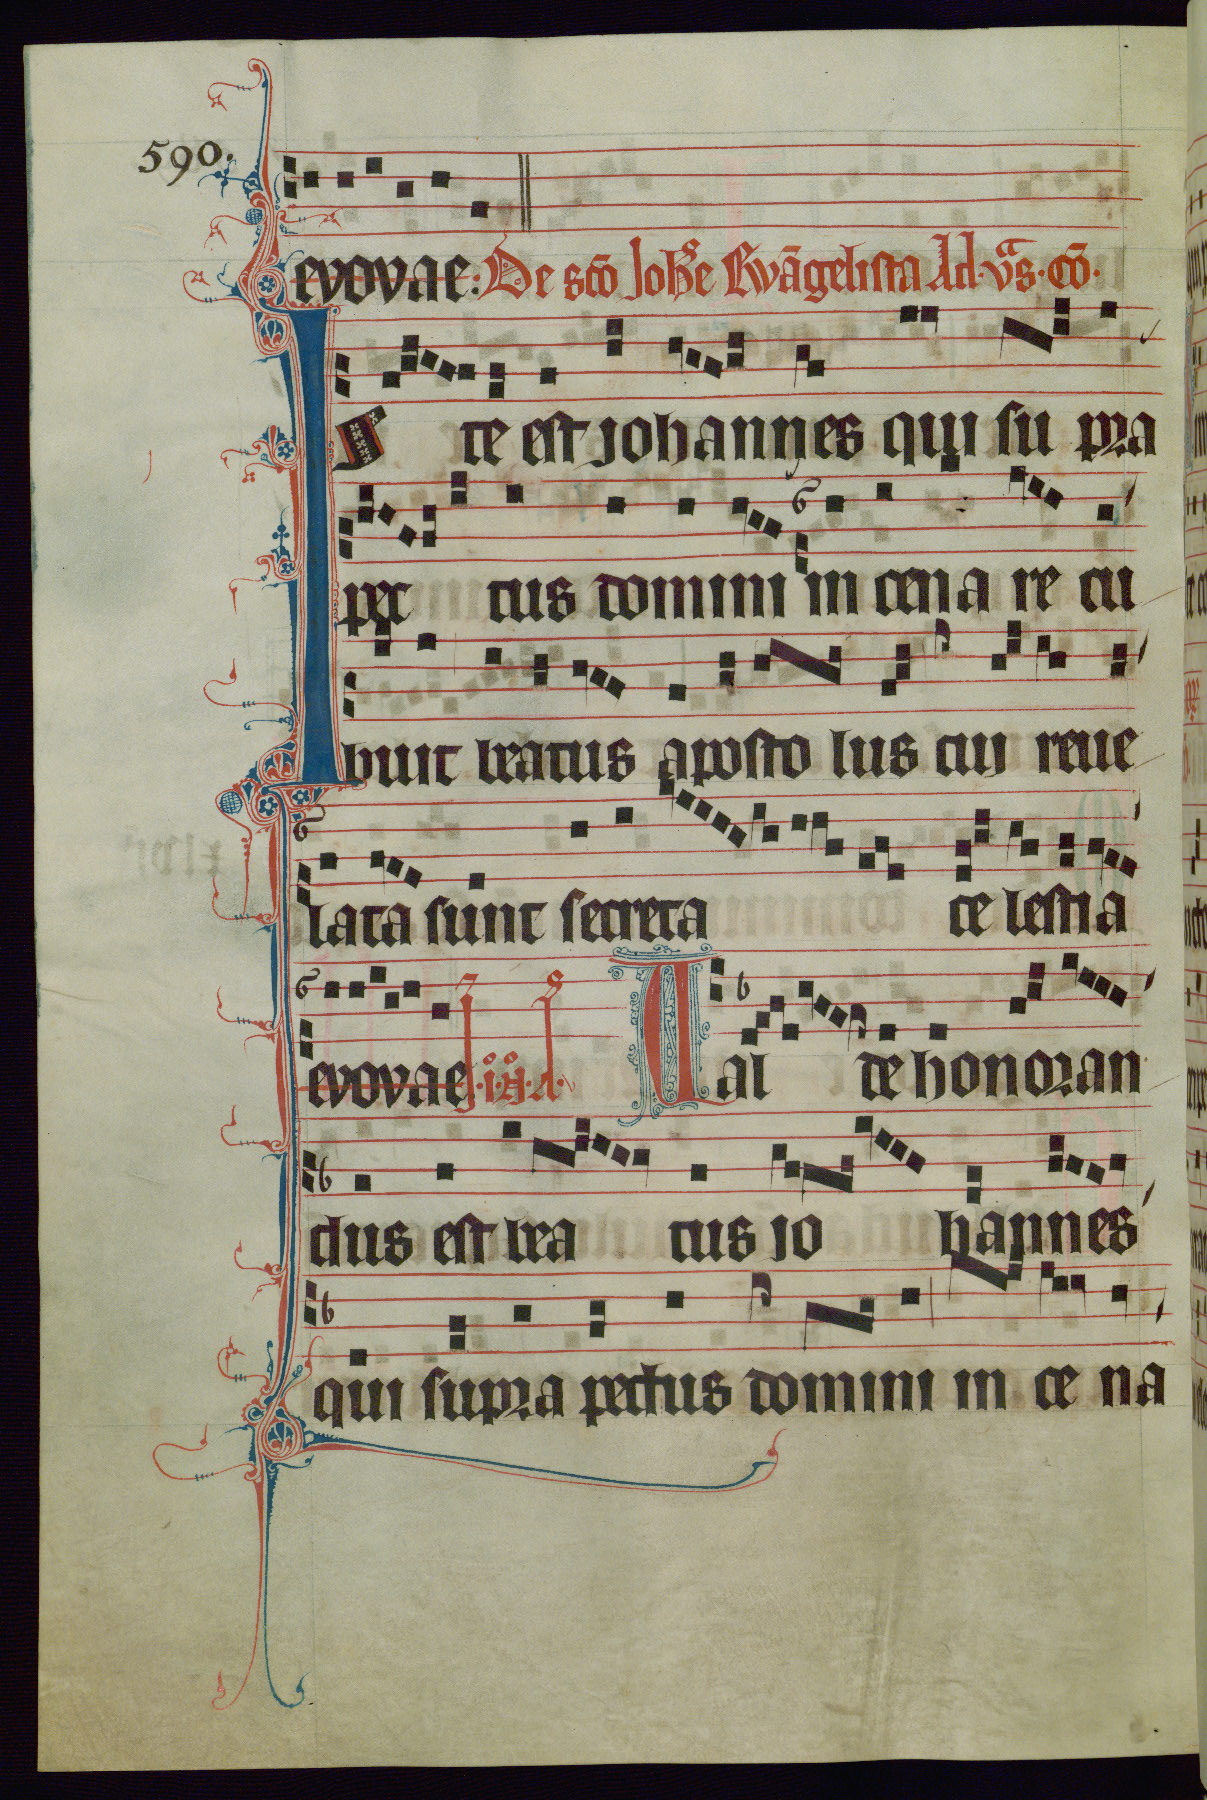 590.
evovae: De sco Johe Evāgelista Ad vas. cō.
IS te est johannes qui su pra
pec tus domini in cena re cu
buit beatus aposto lus cui reue
lata sunt secreta ce lestia
evovae. Ual de honoran
dus est bea tus jo hannes
qui supra pectus domini in ce na